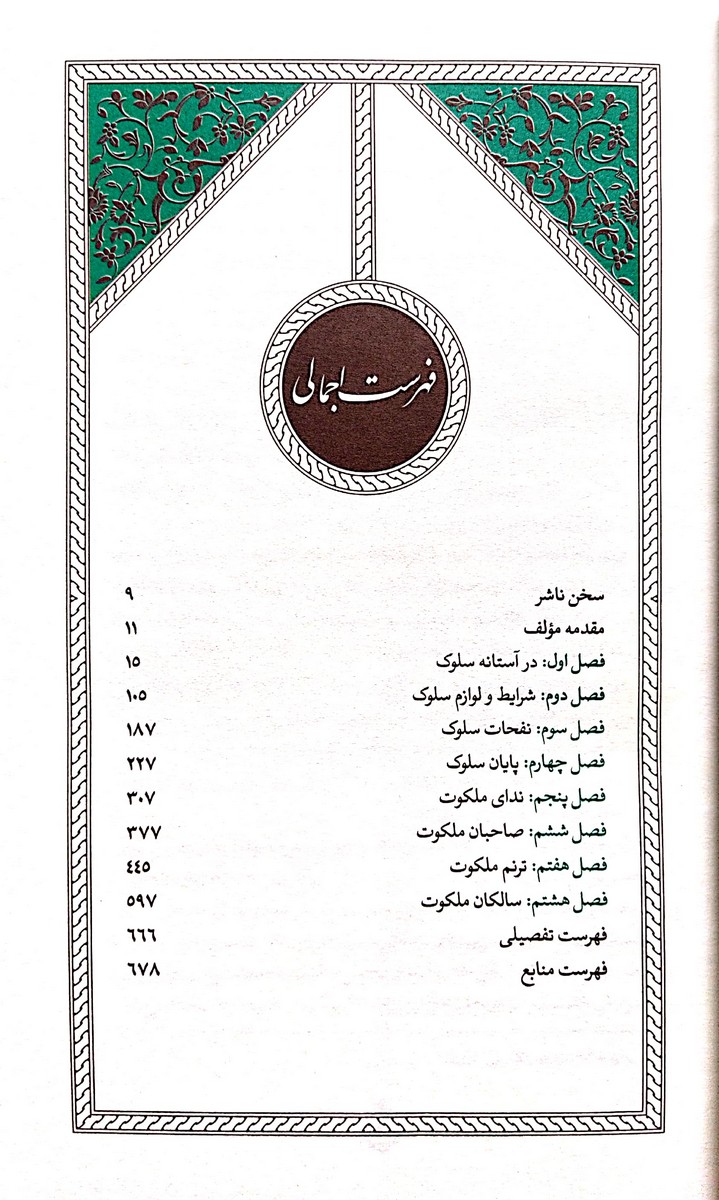 فهرست اجمالی
سخن ناشر ۹
مقدمه مؤلف ۱۱
فصل اول: در آستانه سلوک ۱۵
فصل دوم: شرایط و لوازم سلوک ۱۰۵
فصل سوم: نفحات سلوک ۱۸۷
فصل چهارم: پایان سلوک ۲۲۷
فصل پنجم: ندای ملکوت ۳۰۷
فصل ششم: صاحبان ملکوت ۳۷۷
فصل هفتم: ترنم ملکوت ٤٤٥
فصل هشتم: سالکان ملکوت ٥٩٧
فهرست تفصیلی ٦٦٦
فهرست منابع ٦٧٨